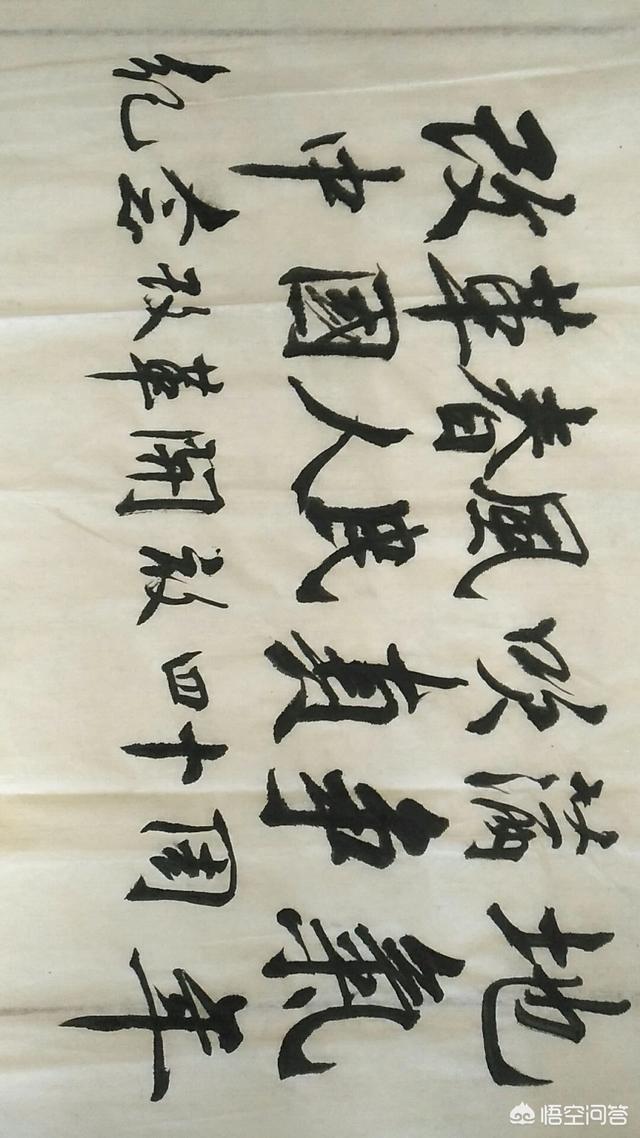 改革春風吹滿地
中國人民真争氣
纪念改革開放四十周年
悟空问答